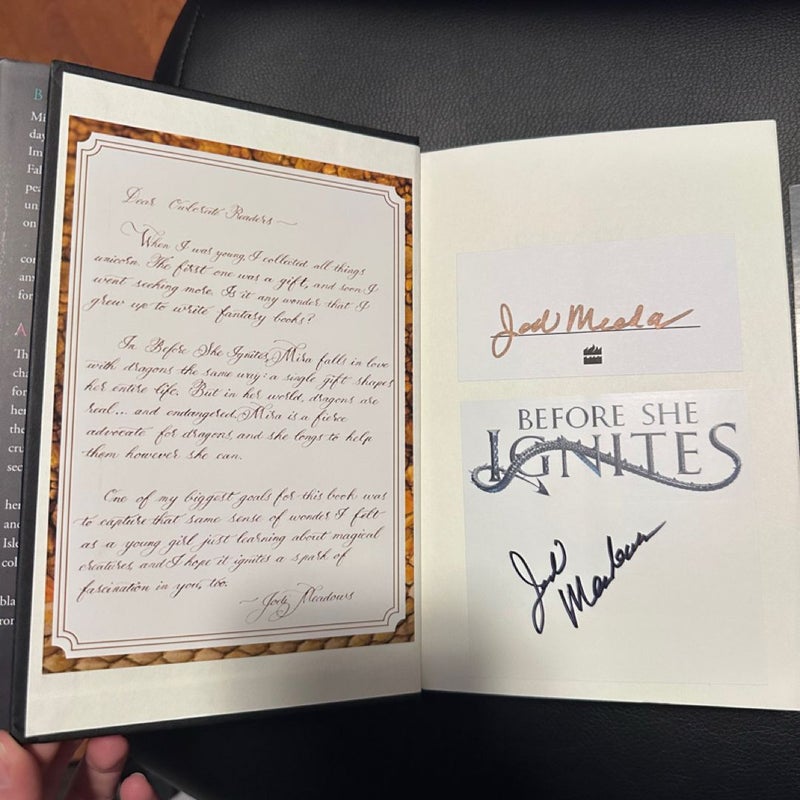 Dear Owlcrate Readers ~
When I was young, I collected all things
unicorn. The first one was a gift, and soon I
went seeking more. Is it any wonder that I
grew up to write fantasy books?
In Before She Ignites, Mira falls in love
with dragons the same way: a single gift shapes
her entire life. But in her world, dragons are
real... and endangered. Mira is a fierce
advocate for dragons, and she longs to help
them however she can.
One of my biggest goals for this book was
to capture that same sense of wonder I felt
as a young girl just learning about magical
creatures, and I hope it ignites a spark of
fascination in you, too.
~ Jodi Meadows
BEFORE SHE
IGNITES
Jodi Meadows